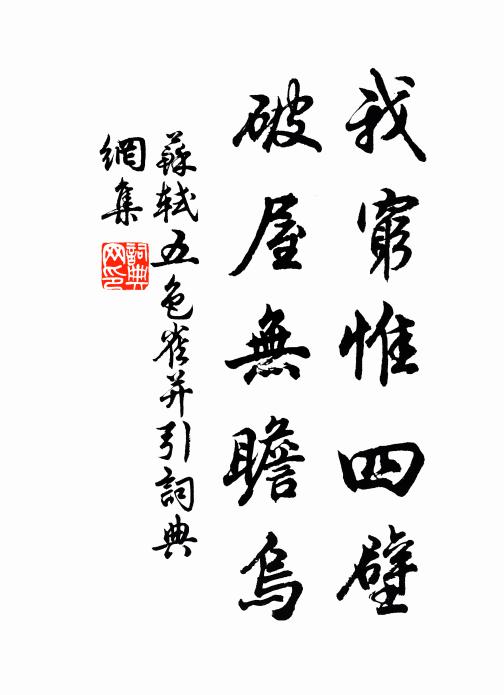 我窮惟四壁
破屋無瞻烏
蘇軾五色雀并引詞典
網集
詞典网印